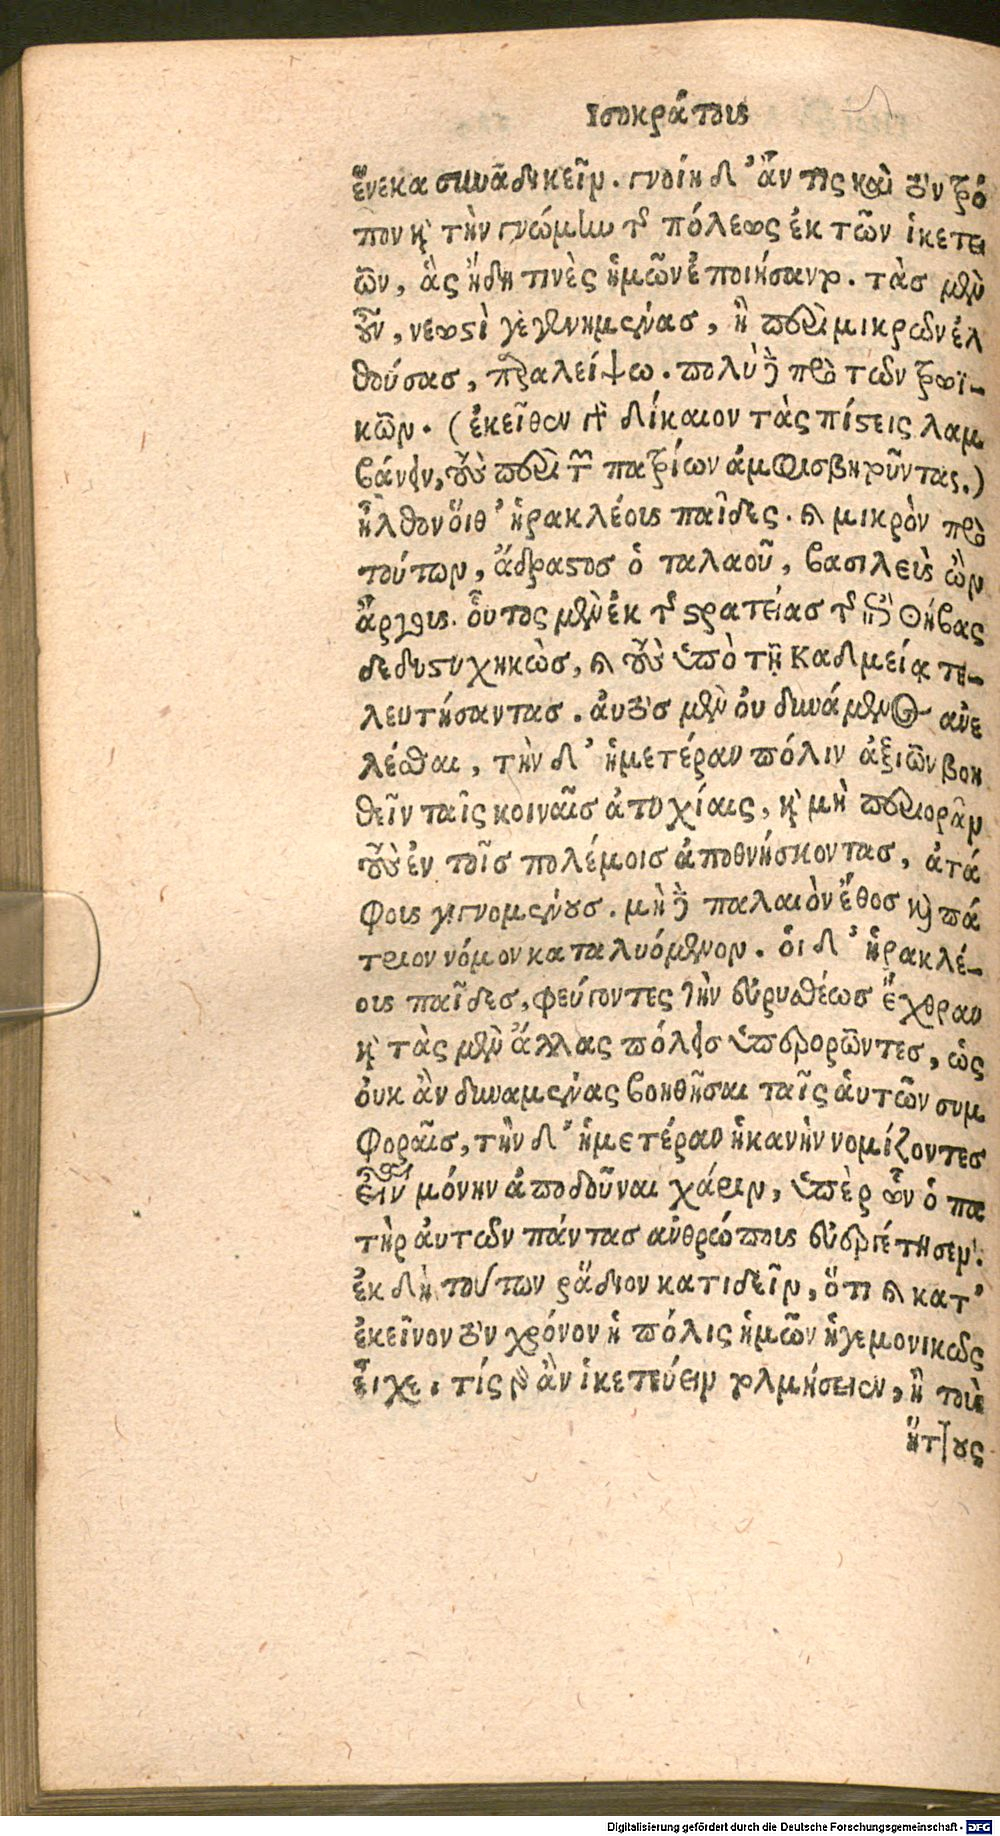 Ισοκράτους
ἕνεκα συναδικεῖν. γνοίη δ' ἄν τις καὶ τὸν τρό
πον καὶ τὴν γνώμην τῆς πόλεως ἐκ τῶν ἱκετει
ῶν, ἃς ἤδη τινὲς ἡμῶν ἐποιήσαντο. τὰς μὲν
οὖν, νεωστὶ γεγενημένας, ἢ περὶ μικρῶν ἐλ
θούσας, παραλείψω. πολὺ δὲ πρὸ τῶν τρωϊ-
κῶν. (ἐκεῖθεν γὰρ δίκαιον τὰς πίστεις λαμ
βάνειν, τοὺς περὶ τῶν πατρίων ἀμφισβητοῦντας.)
ἦλθον οἵθ' ἡρακλέους παῖδες. καὶ μικρὸν πρὸ
τούτων, ἄδραστος ὁ ταλαοῦ, βασιλεὺς ὢν
ἄργους. οὗτος μὲν ἐκ τῆς στρατείας τῆς ἐπὶ Θήβας
δεδυστυχηκὼς, καὶ τοὺς ὑπὸ τῇ Καδμείᾳ τε-
λευτήσαντας. ἀυτὸς μὲν ὀυ δυνάμενος ἀνε
λέσθαι, τὴν δ' ἡμετέραν πόλιν ἀξιῶν βοη
θεῖν ταῖς κοιναῖς ἀτυχίαις, καὶ μὴ περιορᾶν
τοὺς ἐν τοῖς πολέμοις ἀποθνήσκοντας, ἀτά
φους γιγνομένους. μὴ δὲ παλαιὸν ἔθος καὶ πά
τριον νόμον καταλυόμενον. ὁι δ' ἡρακλέ-
ους παῖδες, φεύγοντες τὴν ἐυρυσθέως ἔχθραν
καὶ τὰς μὲν ἄλλας πόλεις ὑπερορῶντες, ὡς
ὀυκ ἂν δυναμένας βοηθῆσαι ταῖς ἁυτῶν συμ
φοραῖς, τὴν δ' ἡμετέραν ἡκανὴν νομίζοντες
εἶναι μόνην ἀποδοῦναι χάριν, ὑπὲρ ὧν ὁ πα
τὴρ ἀυτῶν πάντας ἀνθρώπους ἐυεργέτησεν.
ἐκ δὴ τούτων ῥᾴδιον κατιδεῖν, ὅτι καὶ κατ'
ἐκεῖνον τὸν χρόνον ἡ πόλις ἡμῶν ἡγεμονικῶς
εἶχε. τίς γὰρ ἂν ἱκετεύειν τολμήσειεν, ἢ τοὺς
ἥττους